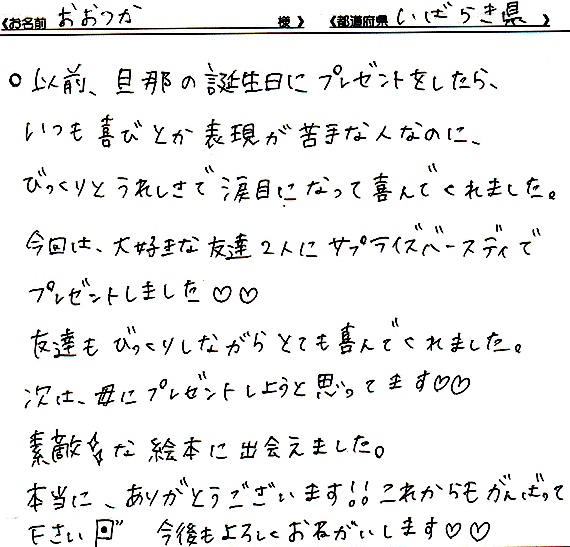 《お名前 おおつか 様 》 《都道府県 いばらき県 》
○ 以前、旦那の誕生日にプレゼントをしたら、
いつも喜びとか表現が苦手な人なのに、
びっくりとうれしさで涙目になって喜んでくれました。
今回は、大好きな友達2人にサプライズバースディで
プレゼントしました♡♡
友達もびっくりしながらとても喜んでくれました。
次は、母にプレゼントしようと思ってます♡♡
素敵な絵本に出会えました。
本当に、ありがとうございます!!これからもがんばって
下さい 今後もよろしくおねがいします♡♡